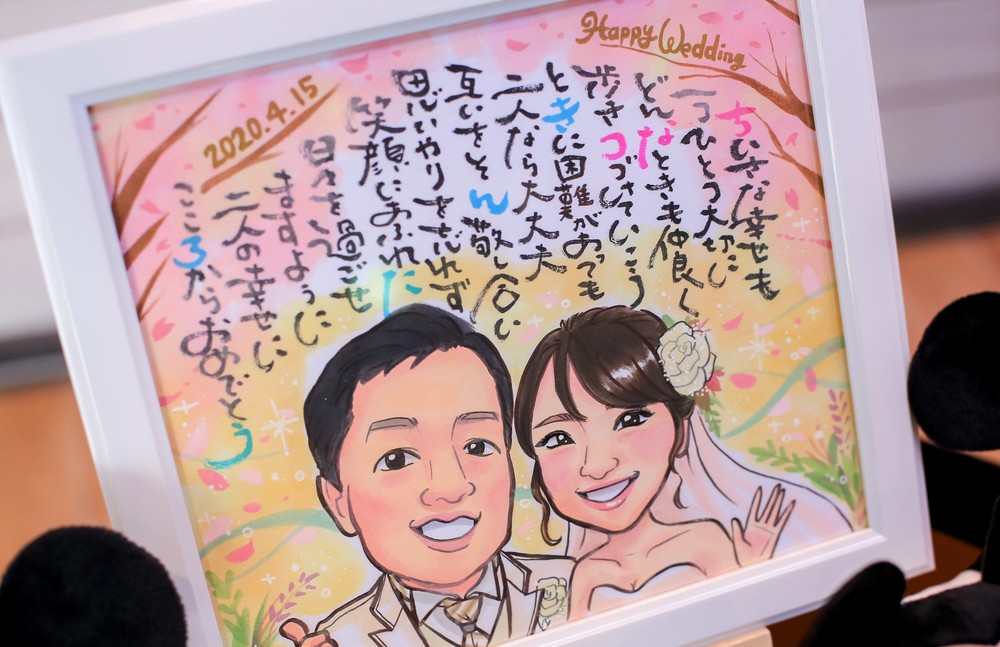 Happy Wedding
ちいさな幸せも
一つひとつ大切に
どんなときも仲良く
歩きつづけていこう
ときに困難があっても
二人なら大丈夫
互いをそん敬し合い
思いやりを忘れず
笑顔にあふれた
日々を過ごせ
ますように
二人の幸せに
こころからおめでとう
2020.4.15